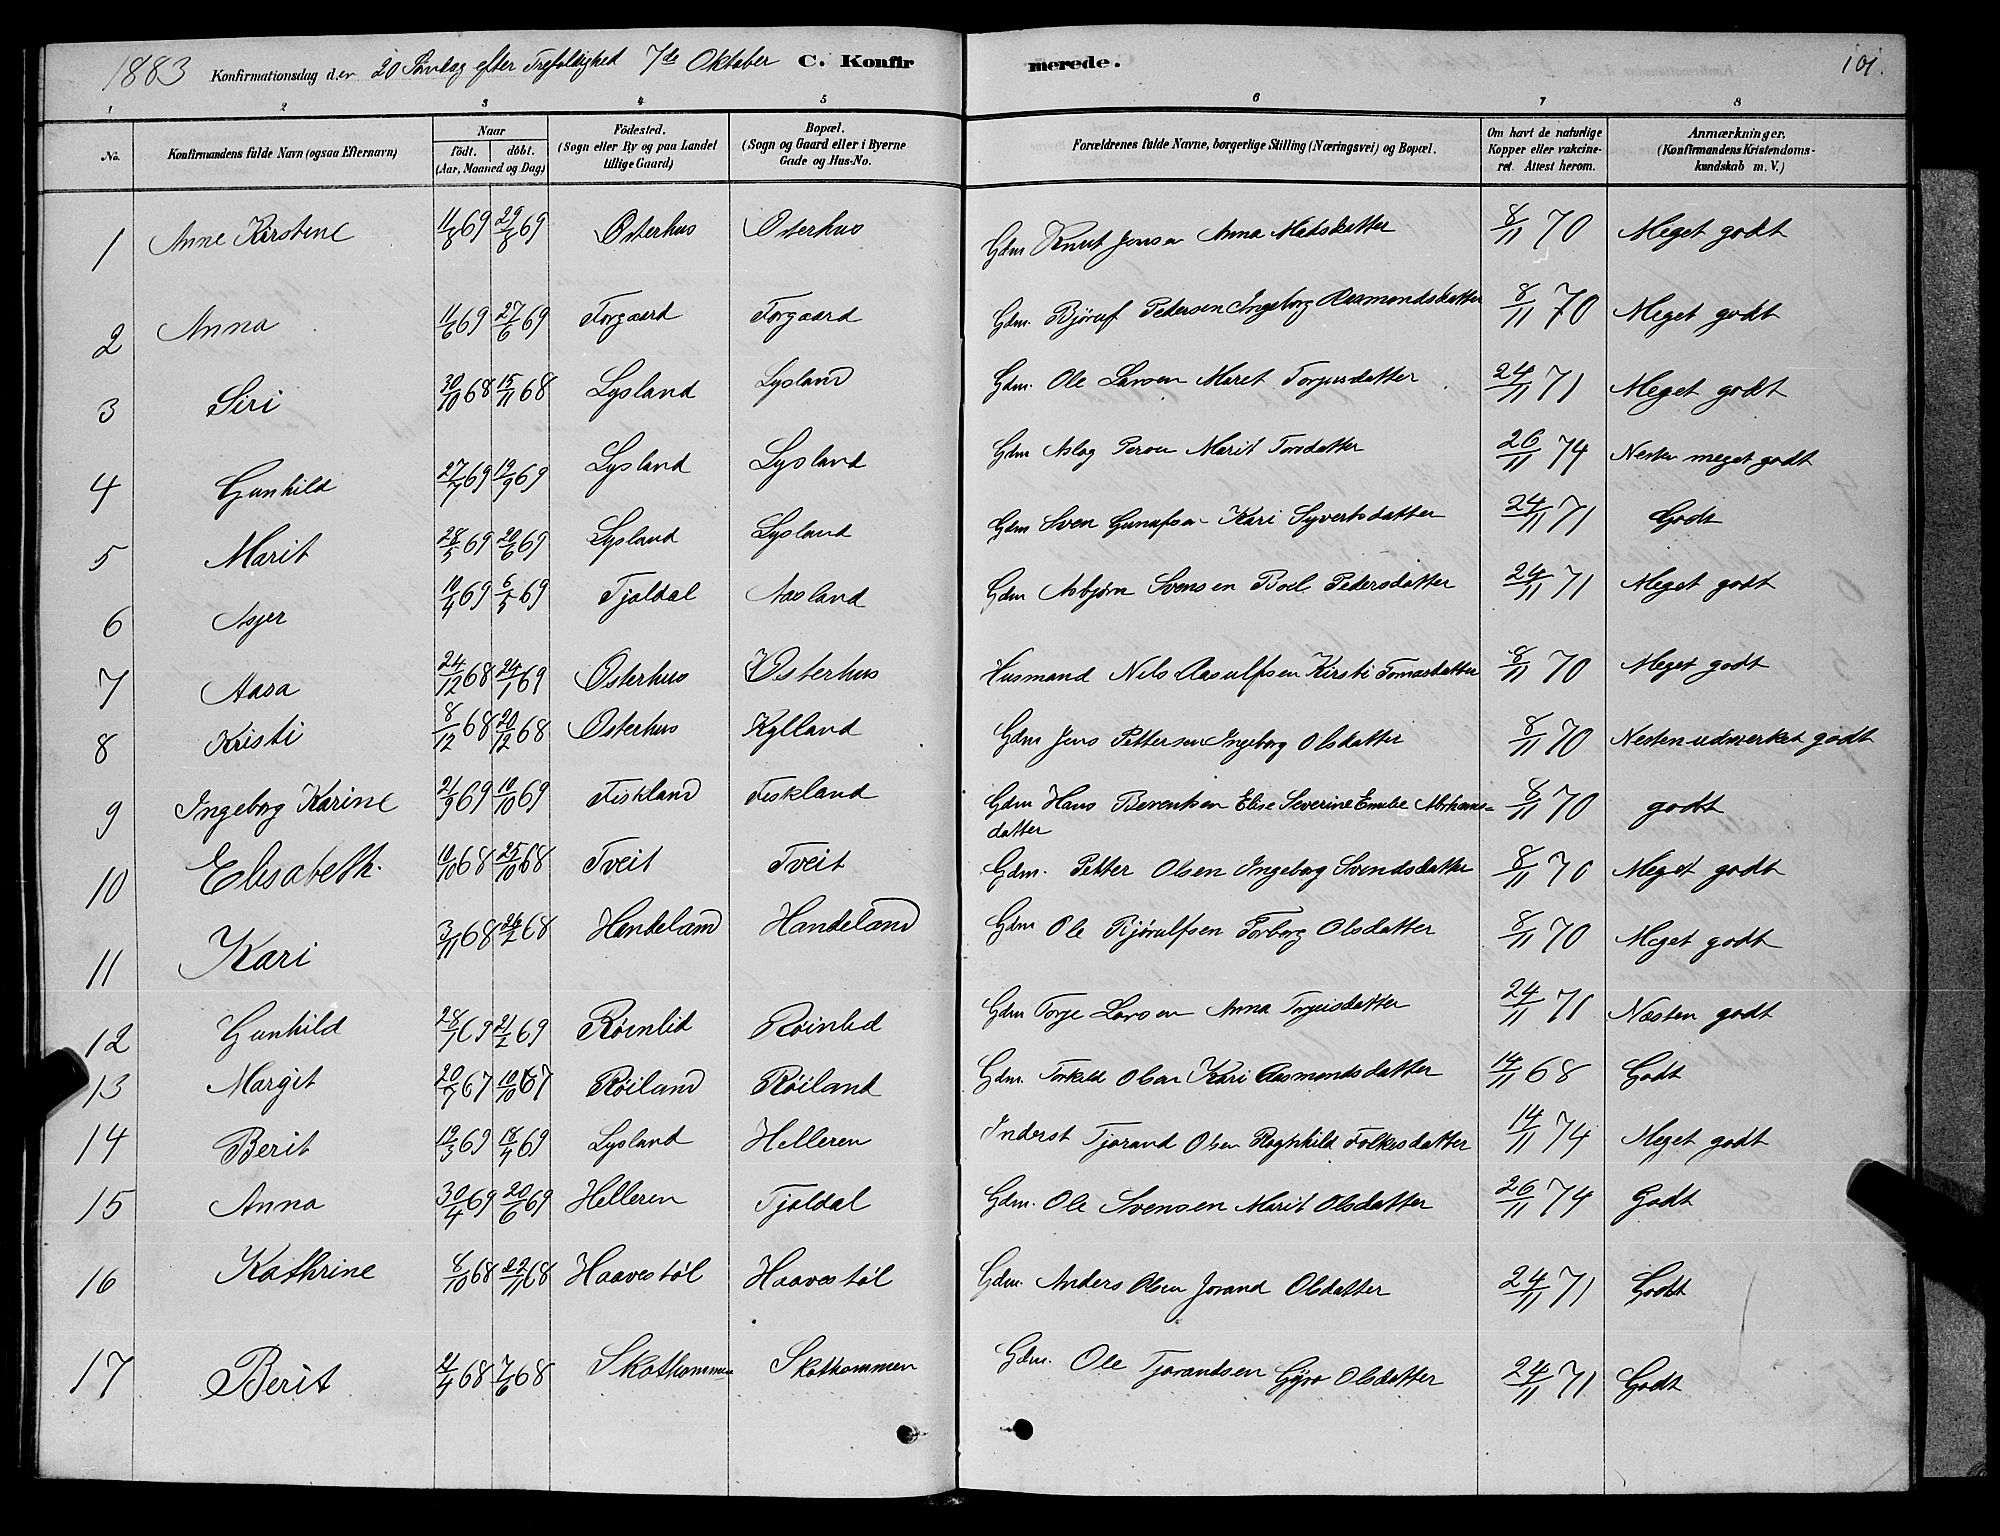 1883 Konfirmationsdag den 20 Søndag efter Trefoldighed 7de Oktober C. Konfirmerede. 101.
1 2 3 4 5 6 7 8
No. Konfirmandens fulde Navn (ogsaa Efternavn) Naar födt. döbt. (Aar, Maaned og Dag) Födested. (Sogn eller By og paa Landet tillige Gaard) Bopæl. (Sogn og Gaard eller i Byerne Gade og Hus-No. Forældrenes fulde Navne, borgerlige Stilling (Næringsvei) og Bopæl. Om havt de naturlige Kopper eller vakcineret. Attest herom. Anmærkninger. (Konfirmandens Kristendomskundskab m. V.)
1 Anne Kirstene 11/8 69 29/8 69 Østerhus Østerhus Gdm Knut Jensen Anna Madsdatter 8/11 70 Meget godt
2 Anna 11/6 69 27/6 69 Torgaard Torgaard Gdm. Bjørulf Pedersen Ingeborg Aasmondsdatter 8/11 70 Meget godt
3 Siri 30/10 68 15/11 68 Lysland Lysland Gdm. Ole Larsen Maret Torjusdatter 24/11 71 Meget godt
4 Gunhild 27/7 69 19/9 69 Lysland Lysland Gdm Aslag Persen Marit Torsdatter 26/11 74 Nesten meget godt
5 Marit 28/5 69 20/6 69 Lysland Lysland Gdm Sven Gunufsen Kari Syvertsdatter 24/11 71 Godt
6 Asjer 10/4 69 6/5 69 Tjaldal Aasland Gdm Asbjørn Svensen Boel Pedersdatter 24/11 71 Meget godt
7 Aasa 24/12 68 24/1 69 Østerhus Østerhus Husmand Nils Aasulfsen Kirsti Tomasdatter 8/11 70 Meget godt
8 Kristi 8/12 68 20/12 68 Østerhus Kylland Gdm Jens Pettersen Ingeborg Olsdatter 8/11 70 Nesten udmerket godt
9 Ingeborg Karine 21/9 69 10/10 69 Fiskland Fiskland Gdm Hans Berentsen Elise Severine Emilie Abrhams-
datter 8/11 70 godt
10 Elisabeth. 10/10 68 25/10 68 Tveit Tveit Gdm. Petter Olsen Ingeborg Svendsdatter 8/11 70 Meget godt
11 Kari 3/11 68 26/12 68 Handeland Handeland Gdm Ole Bjørulfsen Torborg Olsdatter 8/11 70 Meget godt
12 Gunhild 28/1 69 21/2 69 Røinlid Røinlid Gdm Torje Larsen Anna Torjusdatter 24/11 71 Næsten godt
13 Margit 20/7 67 10/10 67 Røiland Røiland Gdm. Torkild Olsen Kari Aasmondsdatter 14/11 68 Godt
14 Berit 19/3 69 18/4 69 Lysland Helleren Inderst Tjorand Olsen Raghhild Folkesdatter 14/11 74 Meget godt
15 Anna 30/4 69 20/6 69 Helleren Tjaldal Gdm. Ole Svensen Marit Olsdatter 26/11 74 Godt
16 Kathrine 8/10 68 22/11 68 Haavestøl Haavestøl Gdm. Anders Olsen Jorand Olsdatter 24/11 71 Godt
17 Berit 21/4 68 7/6 68 Skathommen Skathommen Gdm. Ole Tjorandsen Gyro Olsdatter 24/11 71 Godt